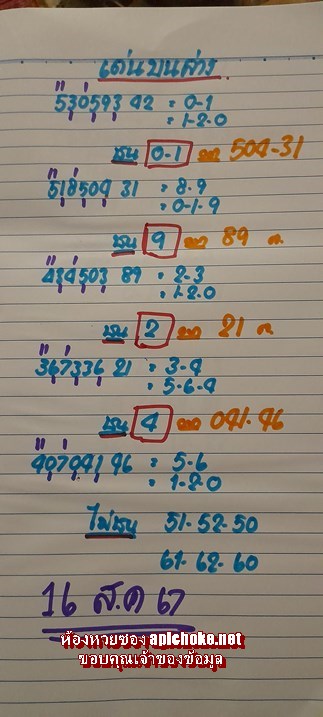 เด่นบนล่าง
530593 42 = 0-1
= 1-2-0
ชน 0-1 504-31
518504 31 = 8-9
= 0-1-9
ชน 9 89 ต.
434503 89 = 2-3
= 1-2-0
ชน 2 21 ต.
367336 21 = 3-4
= 5-6-4
ชน 4 041-46
407041 46 = 5-6
= 1-2-0
ไม่ชน 51-52-50
61-62-60
16 ส.ค 67
ห้องหวยซอง apichoke.net
ขอบคุณเจ้าของข้อมูล